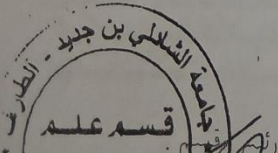 جامعة الشاذلي بن جديد - الطارف
قسم علم